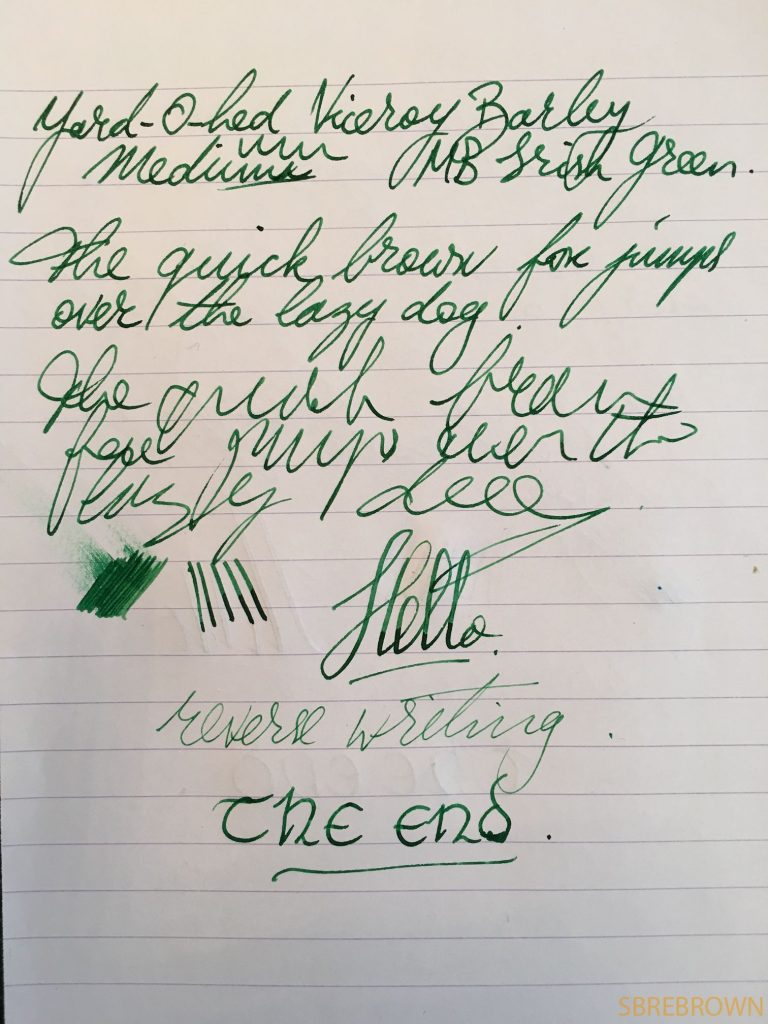 Yard-O-Led Viceroy Barley
Medium MB Irish Green.
The quick brown fox jumps
over the lazy dog.
The quick brown
fox jumps over the
lazy
Hello.
reverse writing.
THE END.
SBREBROWN